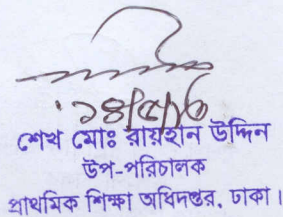 শেখ মোঃ রায়হান উদ্দিন
উপ-পরিচালক
প্রাথমিক শিক্ষা অধিদপ্তর, ঢাকা।